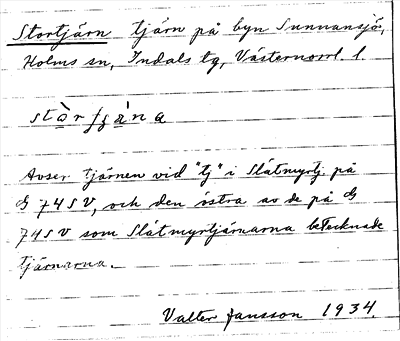 Stortjärn tjärn på byn Sunnansjö,
Holms sn, Indals tg, Västernorrl. l.
Avser tjärnen vid "tj" i Slåtmyrtj. på
74 SV, och den östra av de på
74 SV som Slåtmyrtjärnarna betecknade
tjärnarna.
Valter Jansson 1934.